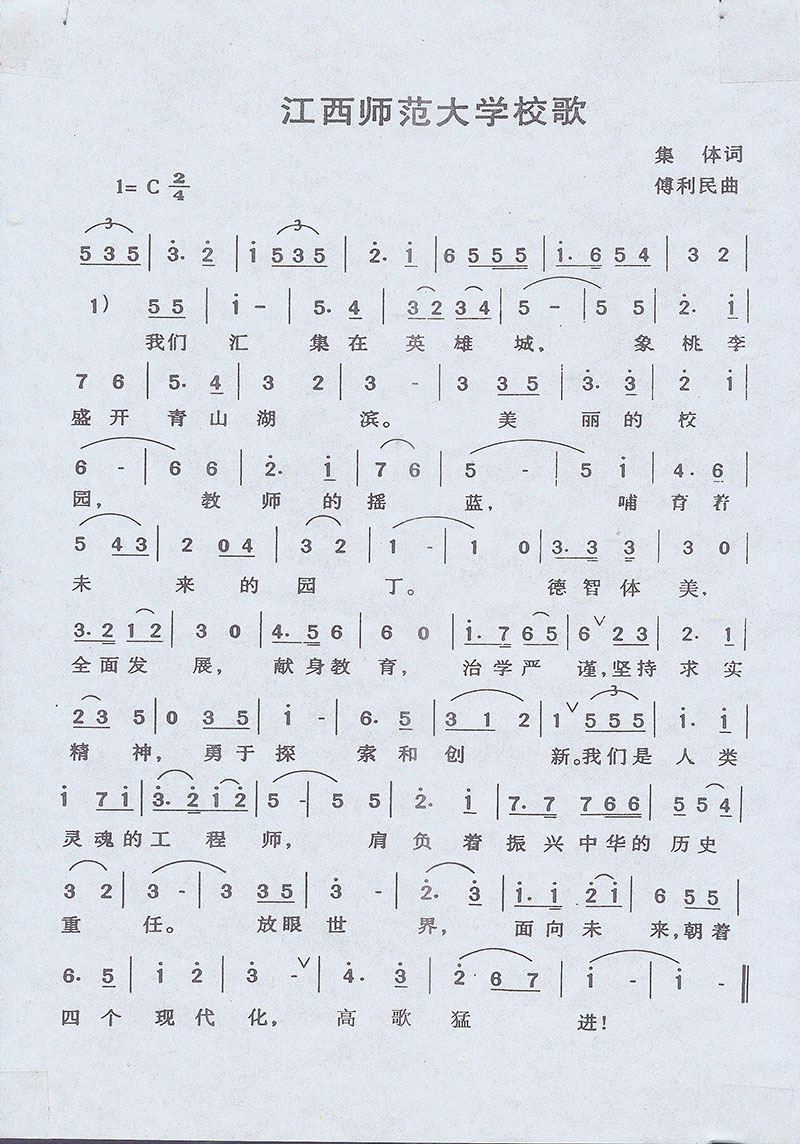 江西师范大学校歌
集 体词
1= C 2/4
傅利民曲
3 3
5 3 5 | 3. 2 | i 5 3 5 | 2. i | 6 5 5 5 | i. 6 5 4 | 3 2 |
1) 5 5 | i - | 5. 4 | 3 2 3 4 | 5 - | 5 5 | 2. i |
我们 汇 集在 英雄 城， 象桃李
7 6 | 5. 4 | 3 2 | 3 - | 3 3 5 | 3. 3 | 2 i |
盛开 青山湖 滨。 美 丽的校
6 - | 6 6 | 2. i | 7 6 | 5 - | 5 i | 4. 6 |
园， 教师的摇 蓝， 哺育着
5 4 3 | 2 0 4 | 3 2 | 1 - | 1 0 | 3. 3 3 | 3 0 |
未 来的园 丁。 德智体美，
3. 2 1 2 | 3 0 | 4. 5 6 | 6 0 | i. 7 6 5 | 6 V 2 3 | 2. 1 |
全面发 展， 献身教育， 治学严 谨，坚持求实
3
2 3 5 | 0 3 5 | i - | 6. 5 | 3 1 2 | 1 V 5 5 5 | i. i |
精 神， 勇于探 索和创 新。我们是人类
i 7 i | 3. 2 i 2 | 5 - | 5 5 | 2. i | 7. 7 7 6 6 | 5 5 4 |
灵魂的工 程师， 肩负着振兴中华的历史
3 2 | 3 - | 3 3 5 | 3 - | 2. 3 | i. i 2 i | 6 5 5 |
重 任。 放眼世 界， 面向未 来，朝着
6. 5 | i 2 | 3 - V | 4. 3 | 2 6 7 | i - | i - ||
四个 现代化， 高歌猛 进！